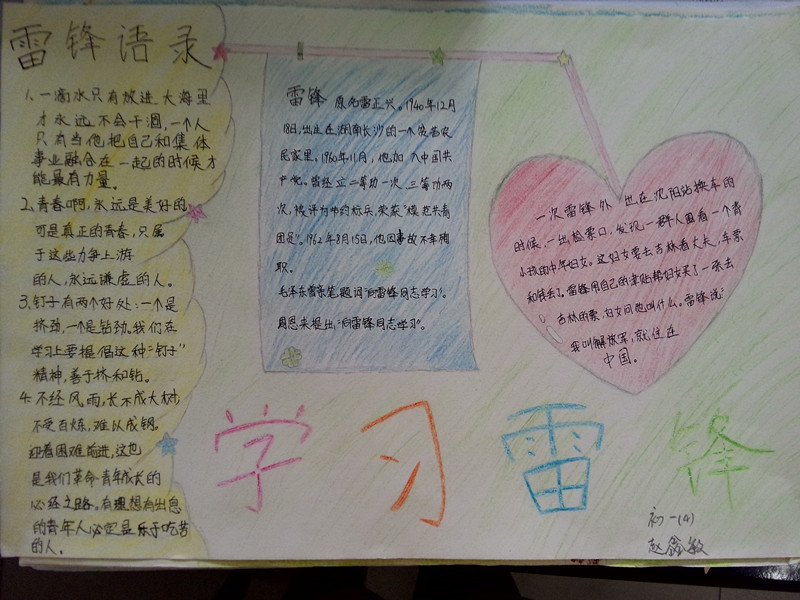 雷锋语录
1、一滴水只有放进大海里
才永远不会干涸,一个人
只有当他把自己和集体
事业融合在一起的时候才
能最有力量。
2、青春啊,永远是美好的
可是真正的青春,只属
于这些力争上游
的人,永远谦虚的人。
3、钉子有两个好处:一个是
挤劲,一个是钻劲。我们在
学习上要提倡这种“钉子”
精神,善于挤和钻。
4、不经风雨,长不成大树,
不受百炼,难以成钢。
迎着困难前进,这也
是我们革命青年成长的
必经之路。有理想有出息
的青年人必定是乐于吃苦
的人。
雷锋 原名雷正兴。1940年12月
18日,出生在湖南长沙的一个贫苦农
民家里。1960年11月,他加入中国共
产党。曾经立二等功一次 三等功两
次,被评为节约标兵,荣获“模范共青
团员”。1962年8月15日,他因事故不幸殉
职。
毛泽东曾亲笔题词“向雷锋同志学习”。
周恩来提出:“向雷锋同志学习”。
一次雷锋外出在沈阳站换车的
时候,一出检票口,发现一群人围着一个背
小孩的中年妇女。这妇女要去吉林看丈夫,车票
和钱丢了。雷锋用自己的津贴帮妇女买了一张去
吉林的票,妇女问他叫什么。雷锋说:
我叫解放军,就住在
中国。
学习雷锋
初一(4)
赵鑫敏